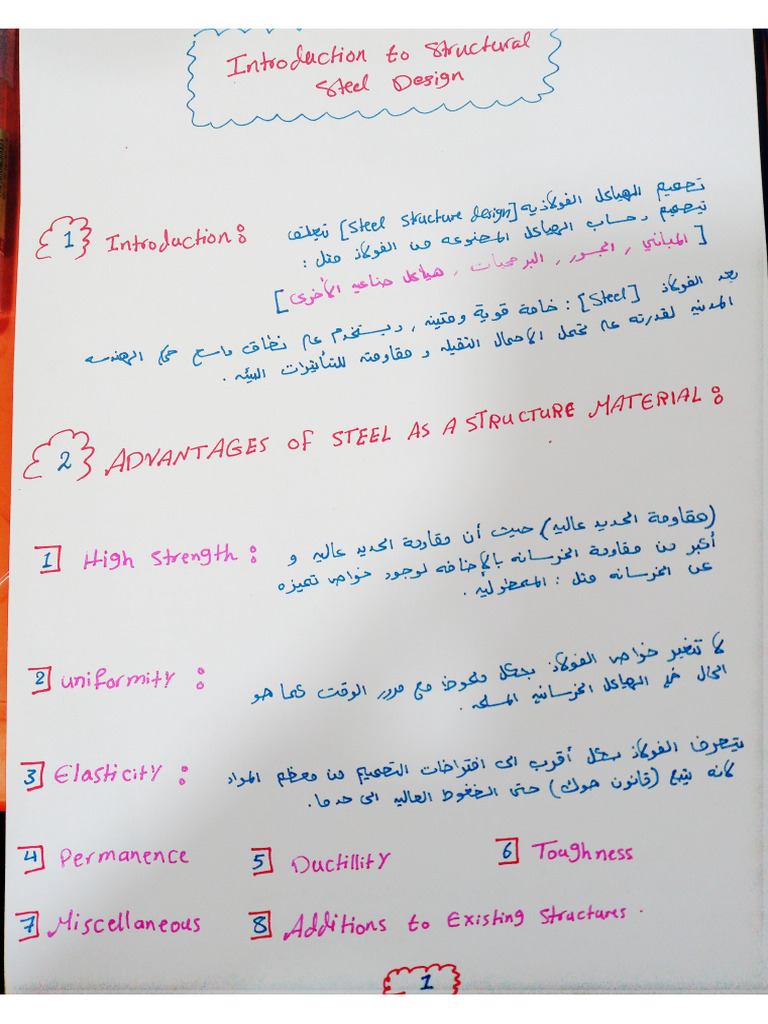 Introduction to Structural
Steel Design
1 Introduction:
تصميم الهياكل الفولاذية [Steel Structure design] تتعلق
بتصميم وحساب الهياكل المصنوعه من الفولاذ مثل :
[المباني , الجسور , البرمجيات , هياكل صناعيه الأخرى]
يعد الفولاذ [Steel] : خامة قوية ومتينه , ويستخدم على نطاق واسع في الهندسه
المدنيه لقدرته على تحمل الأحمال الثقيله و مقاومته للتأثيرات البيئيه .
2 ADVANTAGES OF STEEL AS A STRUCTURE MATERIAL:
1 High Strength :
(مقاومة الحديد عاليه) حيث أن مقاومة الحديد عاليه و
أكبر من مقاومة الخرسانه بالأضافه لوجود خواص تميزه
عن الخرسانه مثل : الممطولية .
2 uniformity :
لا تتغير خواص الفولاذ بشكل ملحوظ مع مرور الوقت كما هو
الحال في الهياكل الخرسانيه المسلحه .
3 Elasticity :
يتصرف الفولاذ بشكل أقرب الى افتراضات التصميم من معظم المواد
لانه يتبع (قانون هوك) حتى الضغوط العاليه الى حد ما .
4 Permanence 5 Ductillity 6 Toughness
7 Miscellaneous 8 Additions to Existing Structures .
1